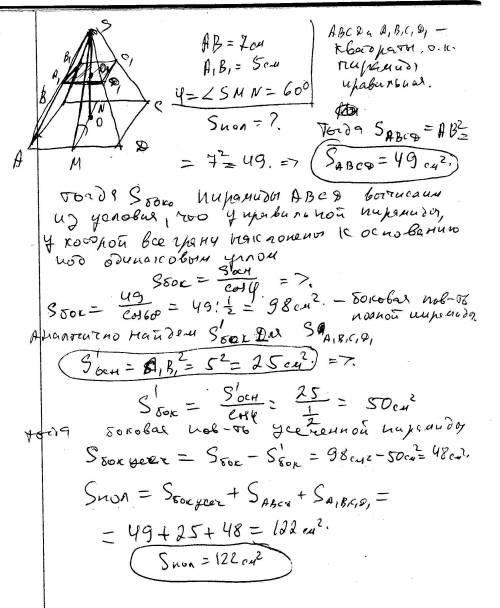 S
B₁ C₁
A₁ O₁ D₁
B C
N
O
A M D
AB = 7см
A₁B₁ = 5см
φ = ∠SMN = 60°
Sпол = ?
ABCD и A₁B₁C₁D₁ –
квадраты, т.к.
пирамида
правильная.
Тогда SABCD = AB² =
= 7² = 49. => SABCD = 49 см².
Тогда Sбок пирамиды ABCD вычислим
из условия, что у правильной пирамиды,
у которой все грани наклонены к основанию
под одинаковым углом
Sбок = Sосн/cosφ =>.
Sбок = 49/cos60 = 49 : 1/2 = 98 см². – боковая пов-ть
полной пирамиды
Аналогично найдем S'бок для SA₁B₁C₁D₁
S'осн = A₁B₁² = 5² = 25 см² =>.
S'бок = S'осн/cosφ = 25/(1/2) = 50 см²
тогда боковая пов-ть усеченной пирамиды
Sбок усеч = Sбок – S'бок = 98 см² – 50 см² = 48 см².
Sпол = Sбок усеч + SABCD + SA₁B₁C₁D₁ =
= 49 + 25 + 48 = 122 см².
Sпол = 122 см²